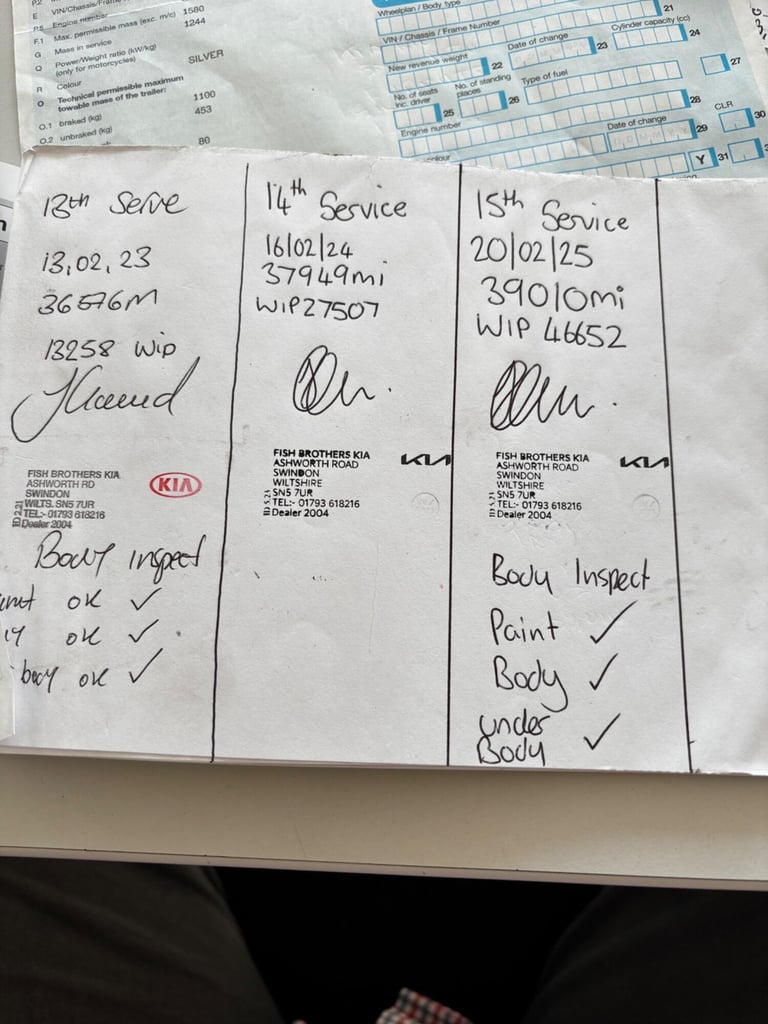 E VIN/Chassis/Frame
P.5 Engine number
F.1 Max. permissible mass (exc. m/c) 1580
G Mass in service 1244
Q Power/Weight ratio (kW/kg)
(only for motorcycles)
R Colour SILVER
O Technical permissible maximum
towable mass of the trailer:
O.1 braked (kg) 1100
O.2 unbraked (kg) 453
80
Wheelplan / Body type 21
VIN / Chassis / Frame Number
New revenue weight 22
Date of change 23
Cylinder capacity (cc) 24
No. of seats
inc. driver 25
No. of standing
places 26
Type of fuel 27
Engine number 28
Date of change 29
CLR 30
colour Y 31
13th Serve
13,02,23
36576M
13258 Wip
FISH BROTHERS KIA
ASHWORTH RD
SWINDON
WILTS. SN5 7UR
TEL:- 01793 618216
Dealer 2004
KIA
Body inspect
ok ✓
ok ✓
body ok ✓
14th Service
16/02/24
37949mi
WIP27507
FISH BROTHERS KIA
ASHWORTH ROAD
SWINDON
WILTSHIRE
SN5 7UR
TEL:- 01793 618216
Dealer 2004
KIA
15th Service
20/02/25
39010mi
WIP 46652
FISH BROTHERS KIA
ASHWORTH ROAD
SWINDON
WILTSHIRE
SN5 7UR
TEL:- 01793 618216
Dealer 2004
KIA
Body Inspect
Paint ✓
Body ✓
under
Body ✓